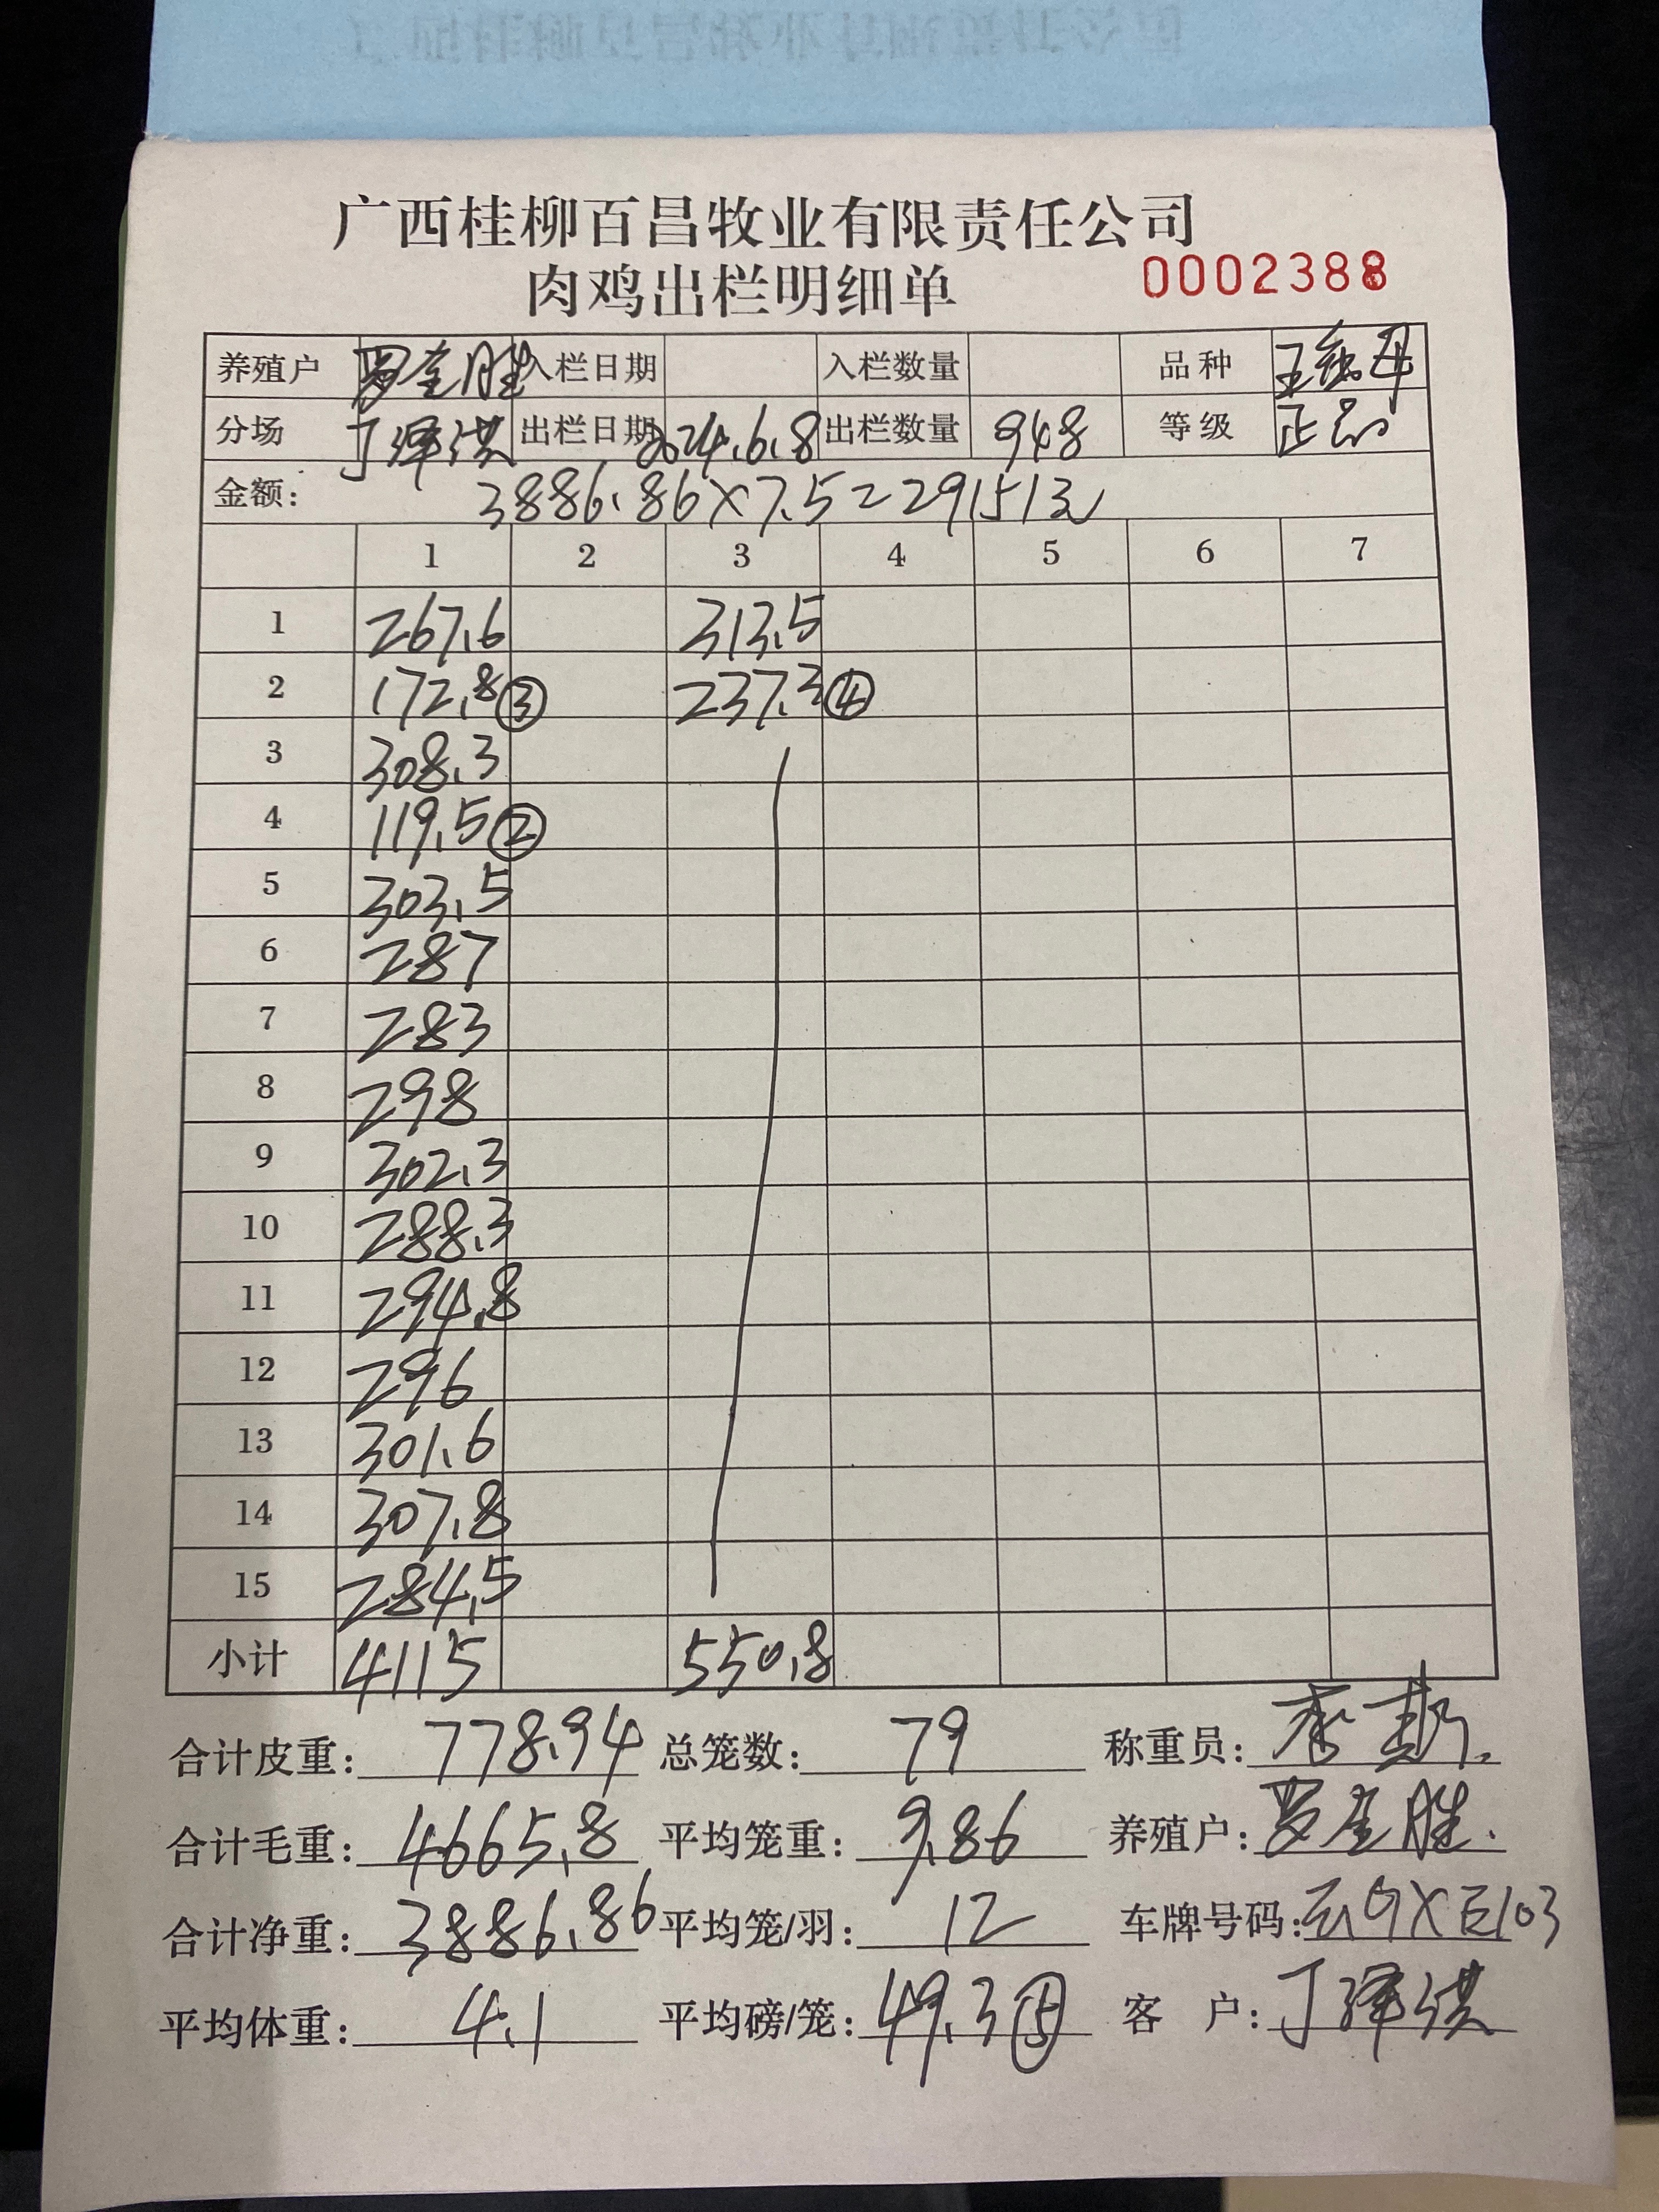 广西桂柳百昌牧业有限责任公司
肉鸡出栏明细单 0002388
养殖户 罗奎胜 入栏日期 入栏数量 品种
分场 丁泽洪 出栏日期 2024.6.8 出栏数量 948 等级 正品
金额: 3886.86×7.5=29151元
1 2 3 4 5 6 7
1 267.6 313.5
2 172.8③ 237.3④
3 308.3
4 119.5②
5 303.5
6 287
7 283
8 298
9 302.3
10 288.3
11 294.8
12 296
13 301.6
14 307.8
15 284.5
小计 4115 550.8
合计皮重: 778.94 总笼数: 79 称重员:
合计毛重: 4665.8 平均笼重: 9.86 养殖户: 罗奎胜.
合计净重: 3886.86 平均笼/羽: 12 车牌号码:
平均体重: 4.1 平均磅/笼: 49.3⑤ 客 户: 丁泽洪